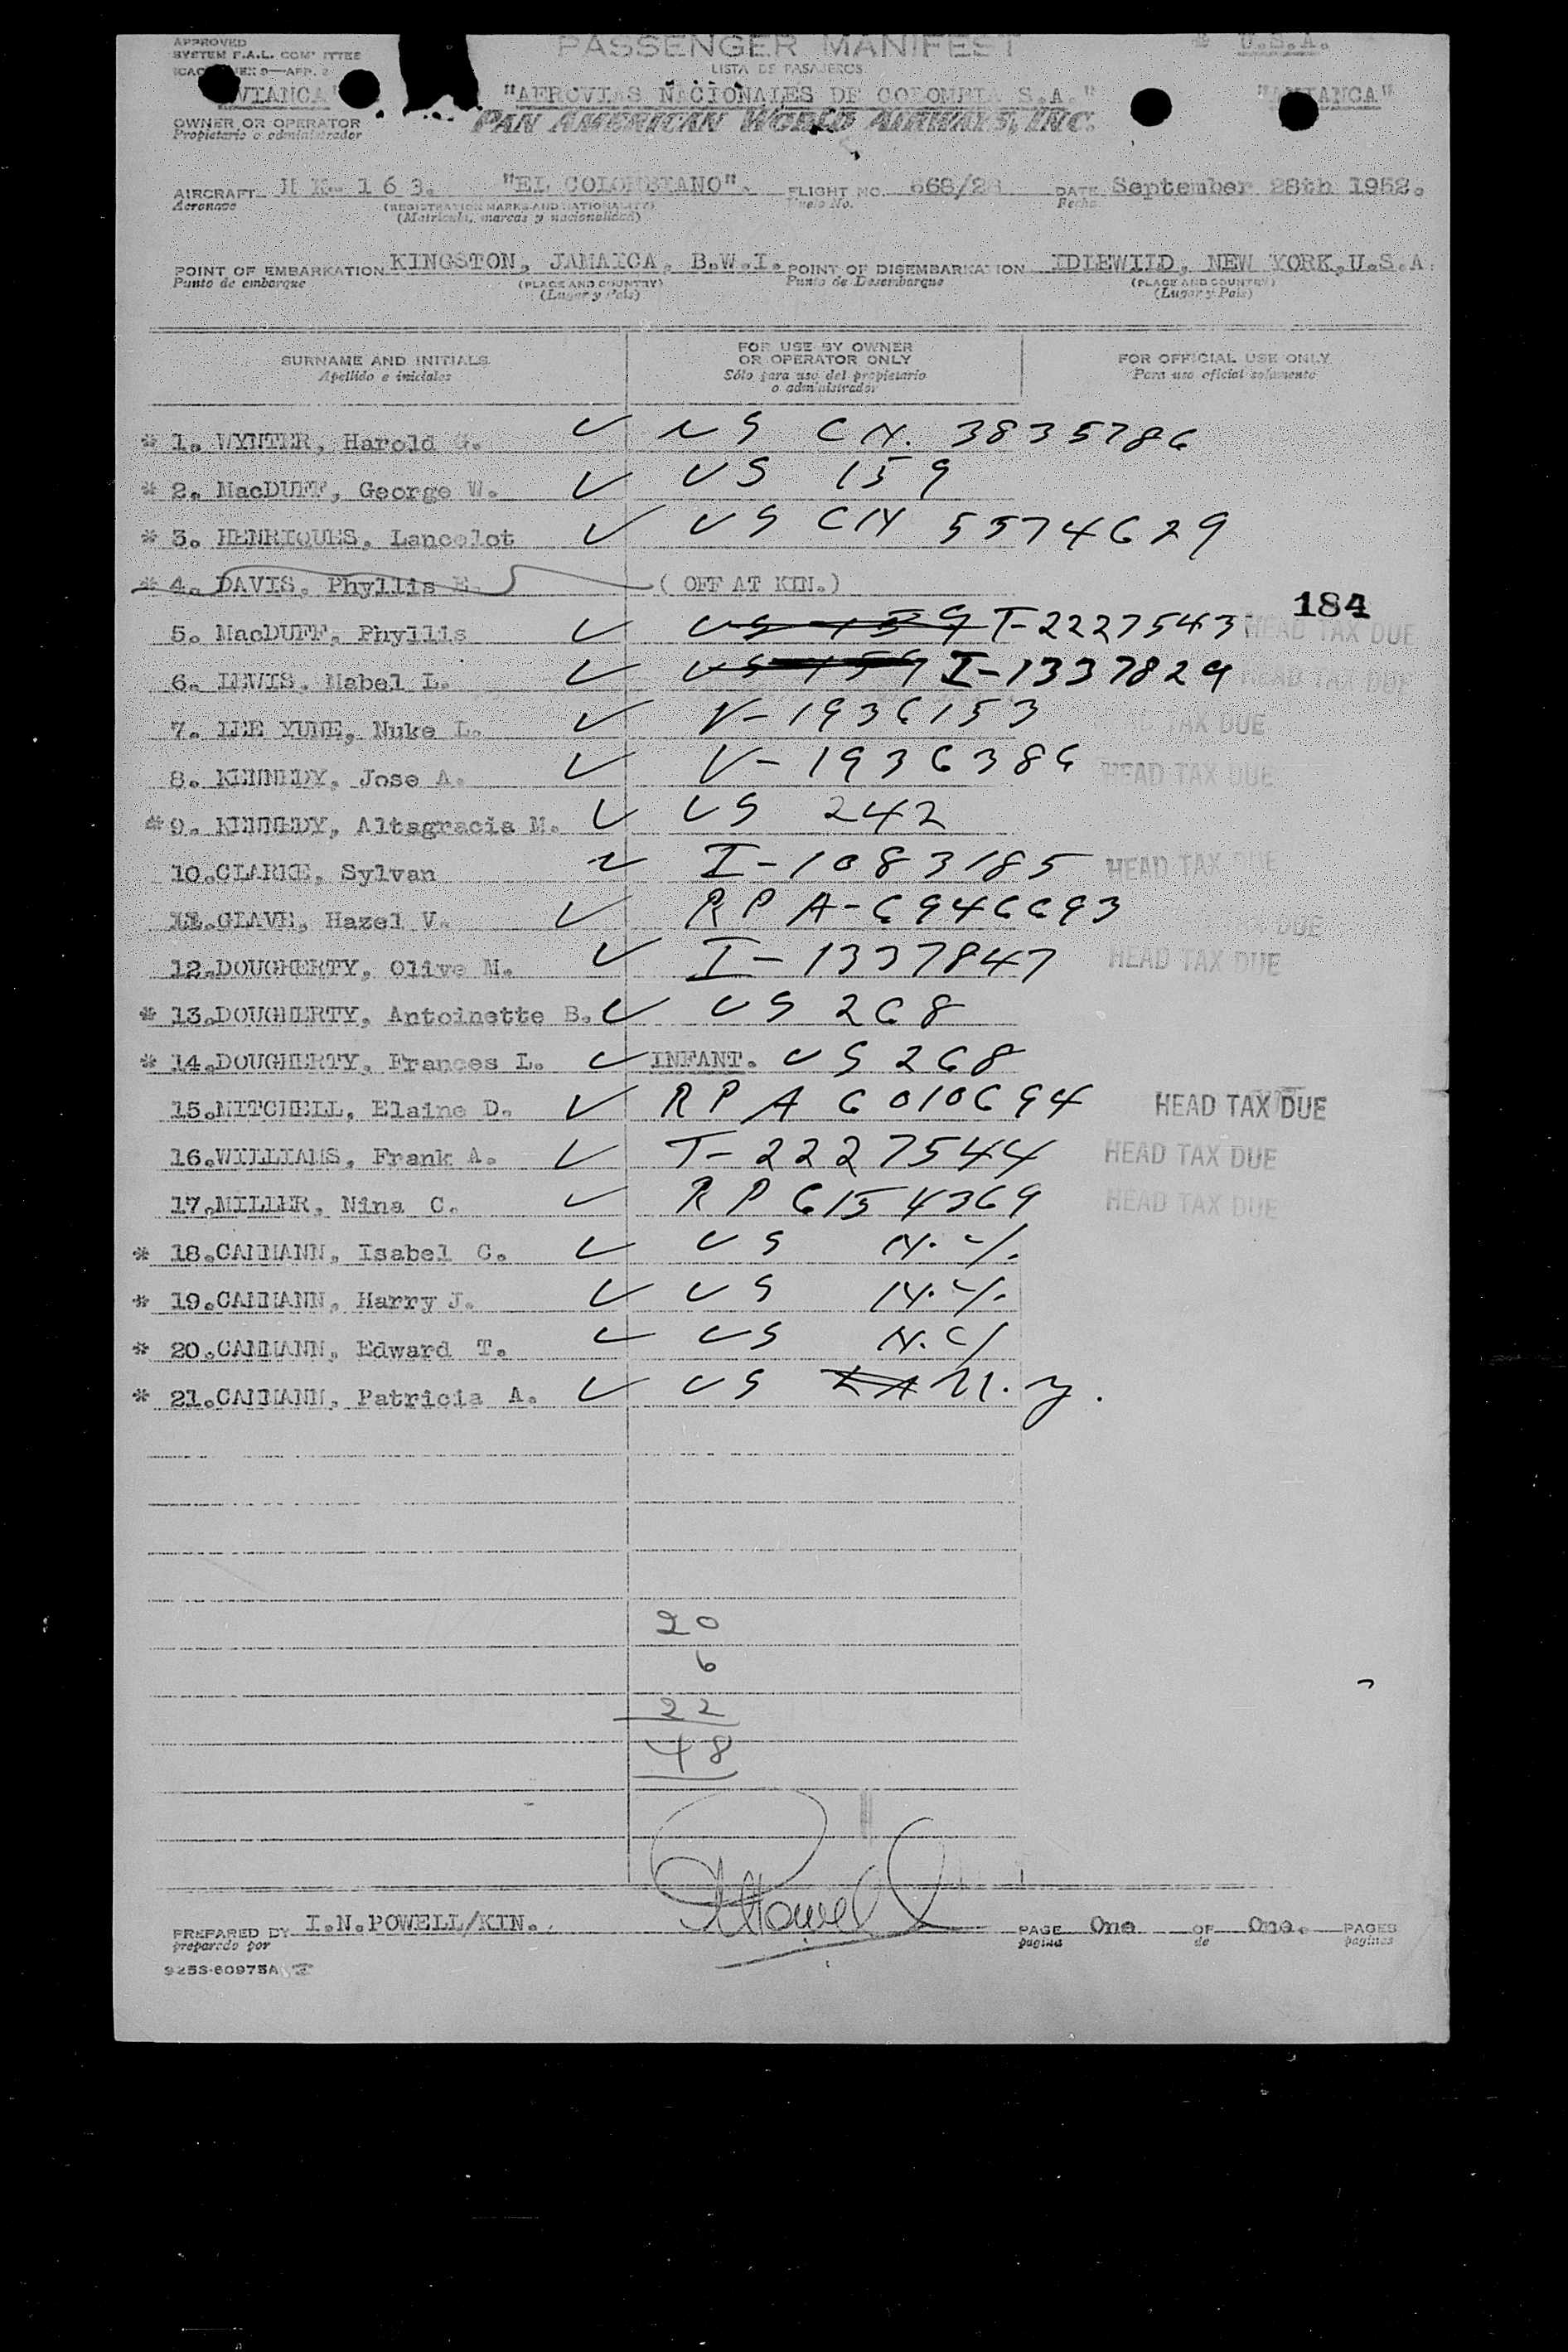 APPROVED
SYSTEM F.A.L. COM ITTEE
PASSENGER MANIFEST
* U.S.A.
LISTA DE PASAJEROS
VIANCA"
"AEROVIAS NACIONALES DE COLOMBIA S.A."
OWNER OR OPERATOR
Propietario o administrador
PAN AMERICAN WORLD AIRWAYS, INC.
AIRCRAFT H K- 1 6 3. "EL COLOMBIANO". FLIGHT NO. 668/28 DATE September 28th 1952.
Aeronave (REGISTRATION MARKS AND NATIONALITY) Vuelo No. Fecha
(Matricula, marcas y nacionalidad)
POINT OF EMBARKATION KINGSTON, JAMAICA, B.W.I. POINT OF DISEMBARKATION IDLEWILD, NEW YORK, U.S.A.
Punto de embarque (PLACE AND COUNTRY) Punto de Desembarque (PLACE AND COUNTRY)
(Lugar y Pais) (Lugar y Pais)
SURNAME AND INITIALS
Apellido e iniciales
FOR USE BY OWNER
OR OPERATOR ONLY
Sólo para uso del propietario
o administrador
FOR OFFICIAL USE ONLY
Para uso oficial solamente
* 1. WYNTER, Harold G. US CN. 3835786
* 2. MacDUFF, George W. US 159
* 3. HENRIQUES, Lancelot US CN 5574629
* 4. DAVIS, Phyllis E. ( OFF AT KIN.)
184
5. MacDUFF, Phyllis US 159 T-2227543 HEAD TAX DUE
6. LEWIS, Mabel L. US 159 I-1337829 HEAD TAX DUE
7. LEE YUNE, Nuke L. V-1936153 TAX DUE
8. KENNEDY, Jose A. V-1936386 HEAD TAX DUE
* 9. KENNEDY, Altagracia M. US 242
10. CLARKE, Sylvan I-1083185 HEAD TAX DUE
11. GLAVE, Hazel V. RP A-6946693 DUE
12. DOUGHERTY, Olive M. I-1337847 HEAD TAX DUE
* 13. DOUGHERTY, Antoinette B. US 268
* 14. DOUGHERTY, Frances L. INFANT. US 268
15. MITCHELL, Elaine D. RP A 6010694 HEAD TAX DUE
16. WILLIAMS, Frank A. T-2227544 HEAD TAX DUE
17. MILLER, Nina C. RP 6154369 HEAD TAX DUE
* 18. CAMMANN, Isabel C. US N.Y.
* 19. CAMMANN, Harry J. US N.Y.
* 20. CAMMANN, Edward T. US N.Y
* 21. CAMMANN, Patricia A. US N.Y.
20
6
22
48
PREPARED BY I.N.POWELL/KIN. PAGE One OF One. PAGES
preparado por pagina de paginas
9253-60975A